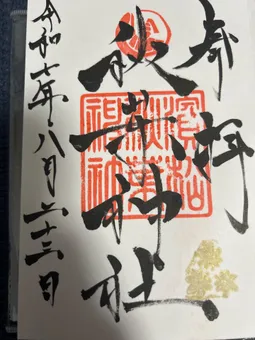 奉拝
秋葉神社
令和七年八月二十三日
濱松
秋葉
神社